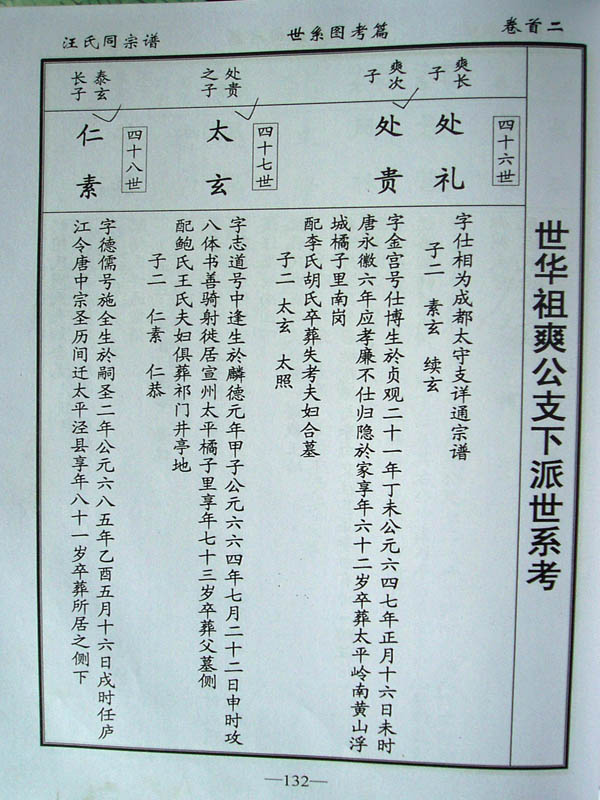 汪氏同宗谱
世系图考篇
卷首二
世华祖爽公支下派世系考
四十六世
爽长子
处礼
字仕相为成都太守支详通宗谱
子二 素玄 续玄
爽次子
处贵
字金宫号仕博生於贞观二十一年丁未公元六四七年正月十六日未时
唐永徽六年应孝廉不仕归隐於家享年六十二岁卒葬太平岭南黄山浮
城橘子里南岗
配李氏胡氏卒葬失考夫妇合墓
子二 太玄 太照
四十七世
处贵之子
太玄
字志道号中逢生於麟德元年甲子公元六六四年七月二十二日申时攻
八体书善骑射徙居宣州太平橘子里享年七十三岁卒葬父墓侧
配鲍氏王氏夫妇俱葬祁门井亭地
子二 仁素 仁恭
四十八世
泰玄长子
仁素
字德儒号施全生於嗣圣二年公元六八五年乙酉五月十六日戌时任庐
江令唐中宗圣历间迁太平泾县享年八十一岁卒葬所居之侧下
—132—